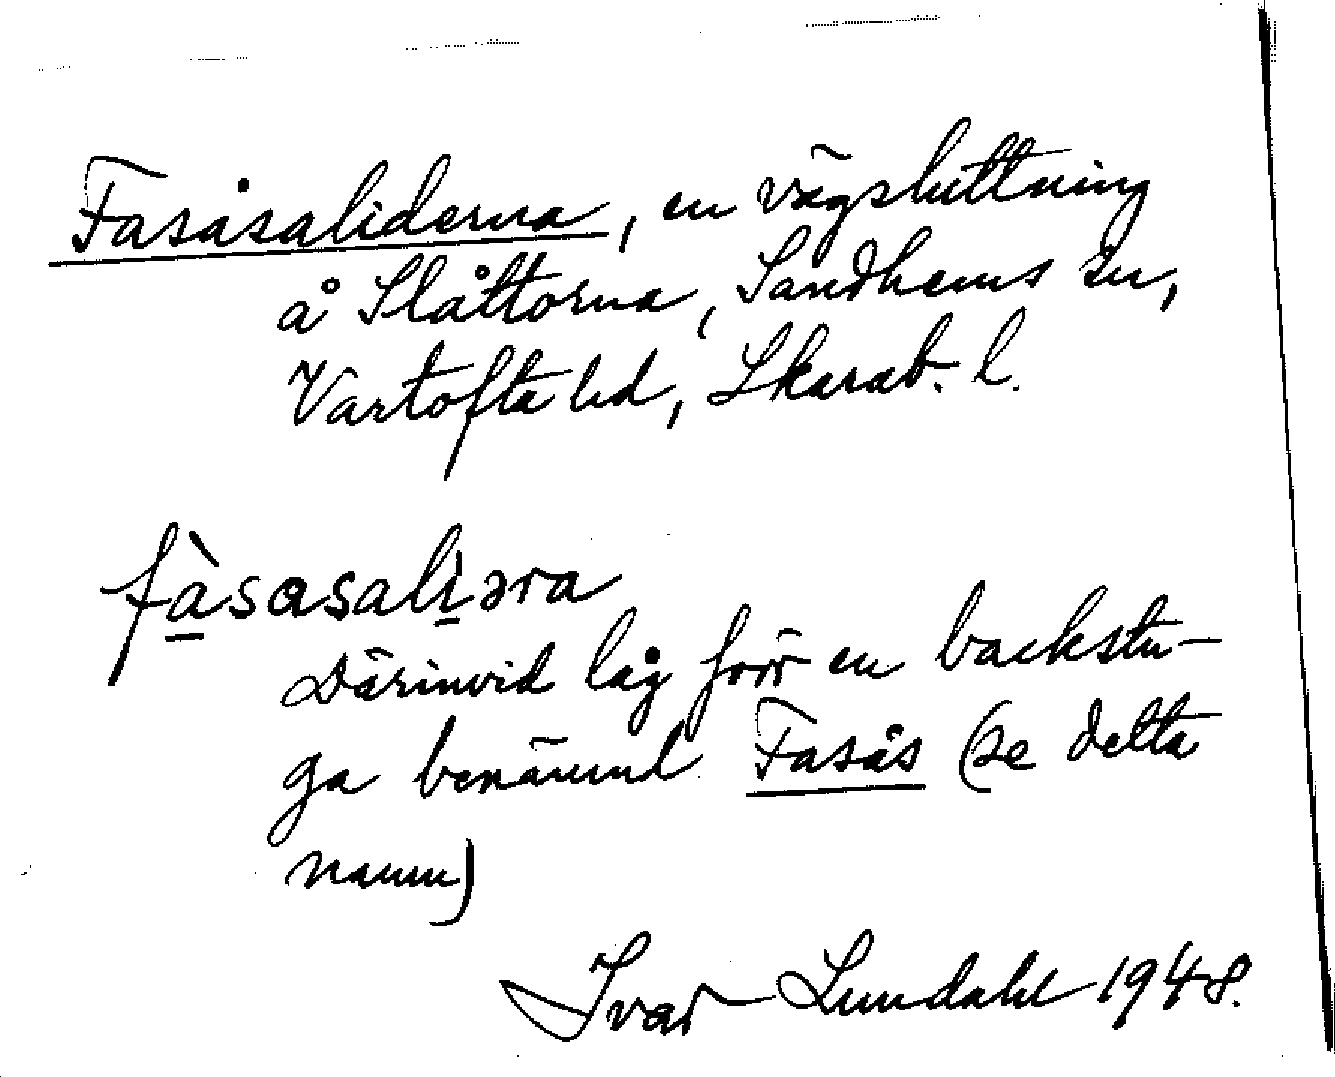 Fasåsaliderna, en vägsluttning
å Slåttorna, Sandhems sn,
Vartofta hd, Skarab. l.
fàsɑsaliəra
Därinvid låg förr en backstu-
ga benämnd Fasås (se detta
namn)
Ivar Lundahl 1948.